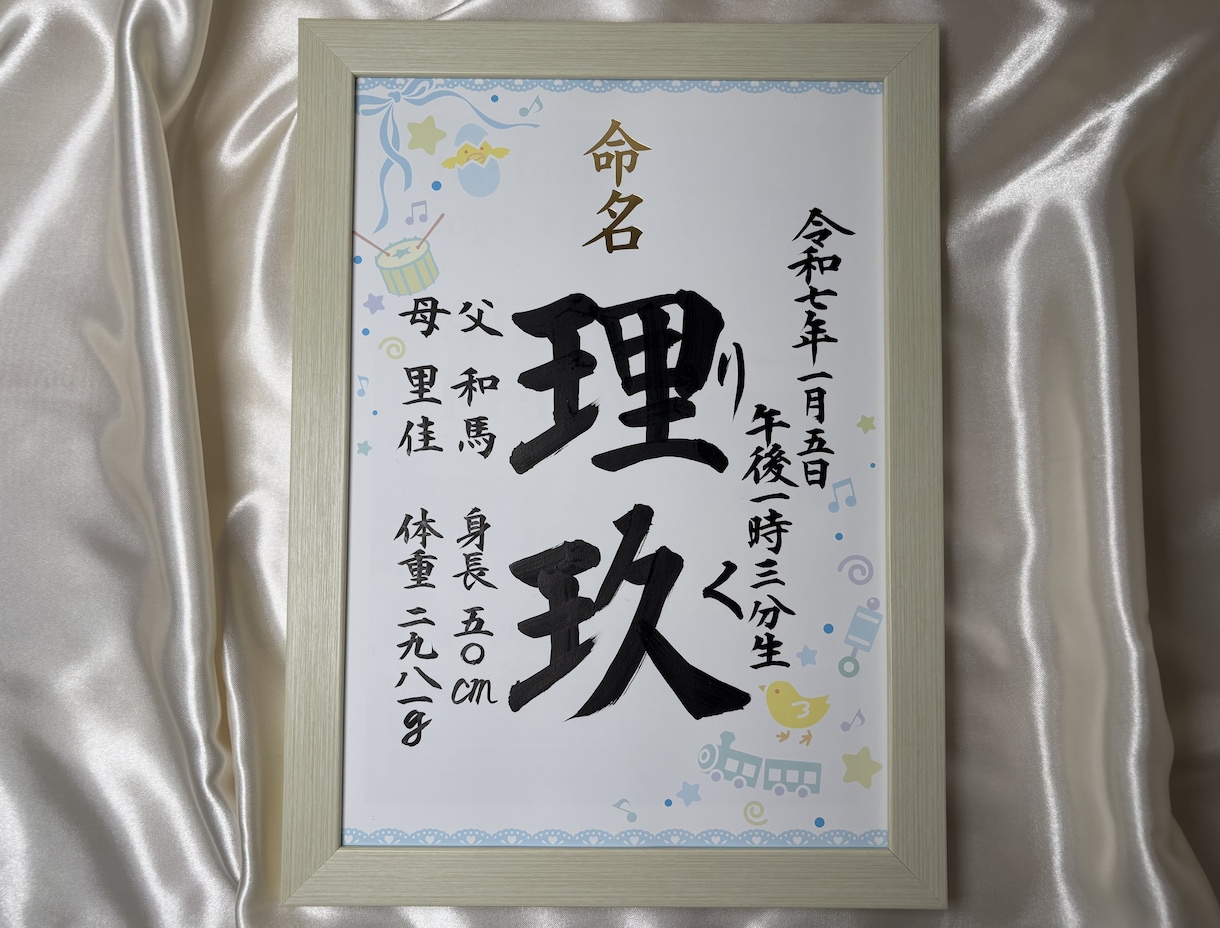 命名
令和七年一月五日
午後一時三分生
りく
理玖
父 和馬
母 里佳
身長 五〇cm
体重 二九八一g